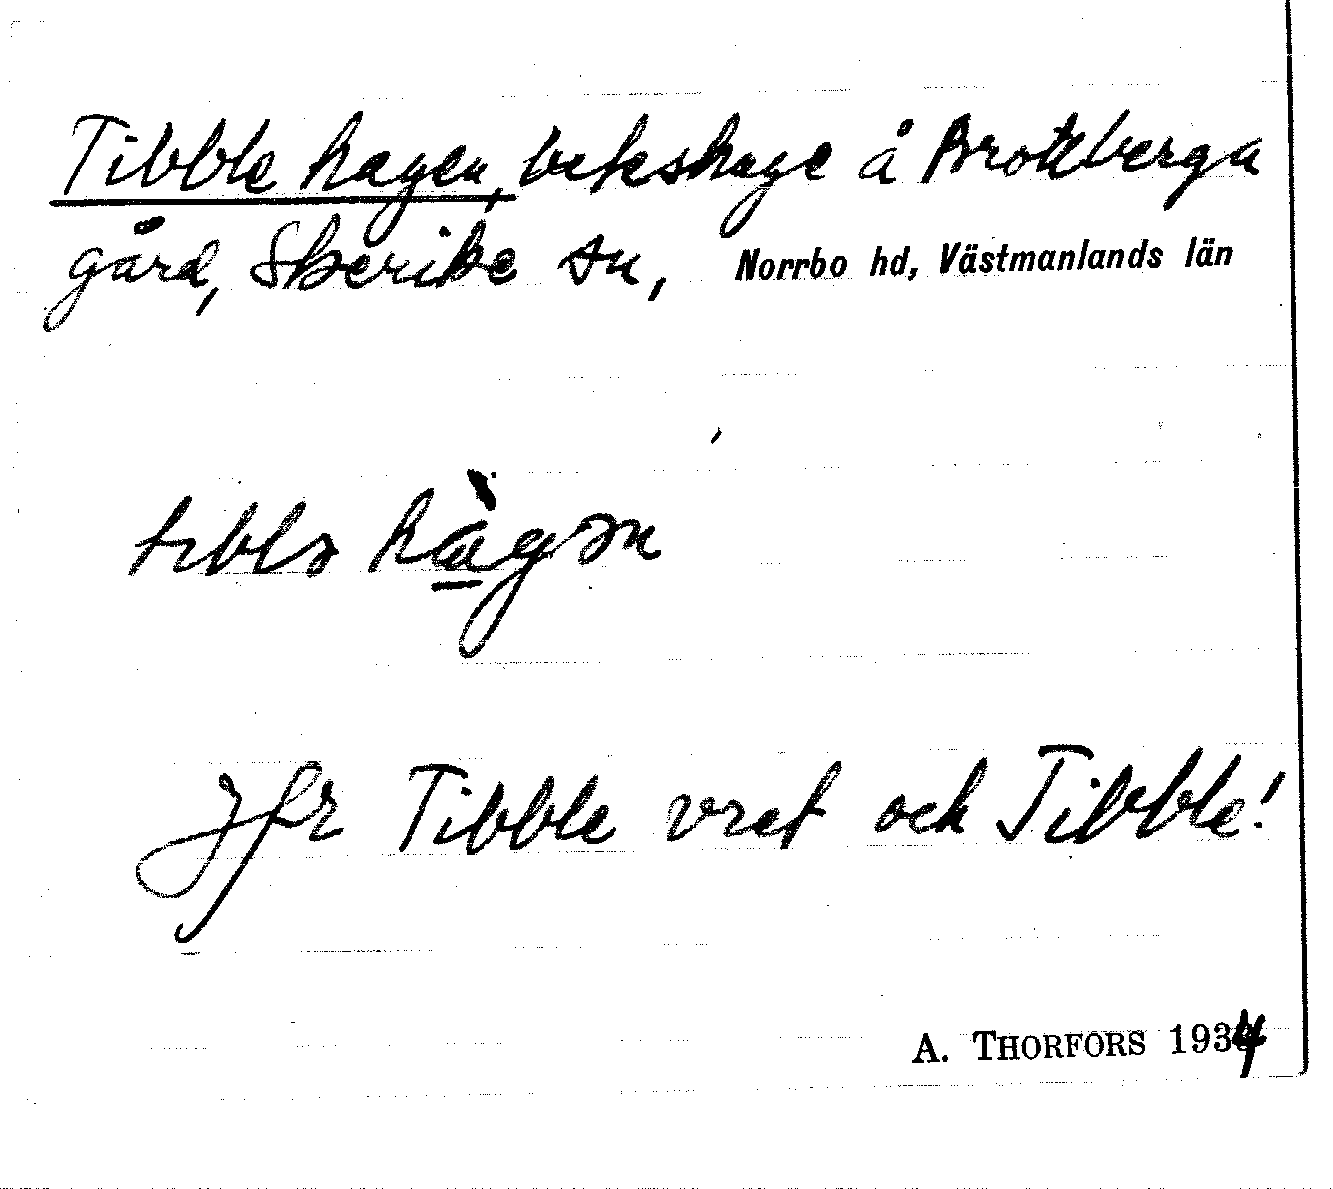 Tibble hagen, beteshage å Brotberga
gård, Skerike sn, Norrbo hd, Västmanlands län
tıblə hàgən
Jfr Tibble vret och Tibble!
A. THORFORS 1934